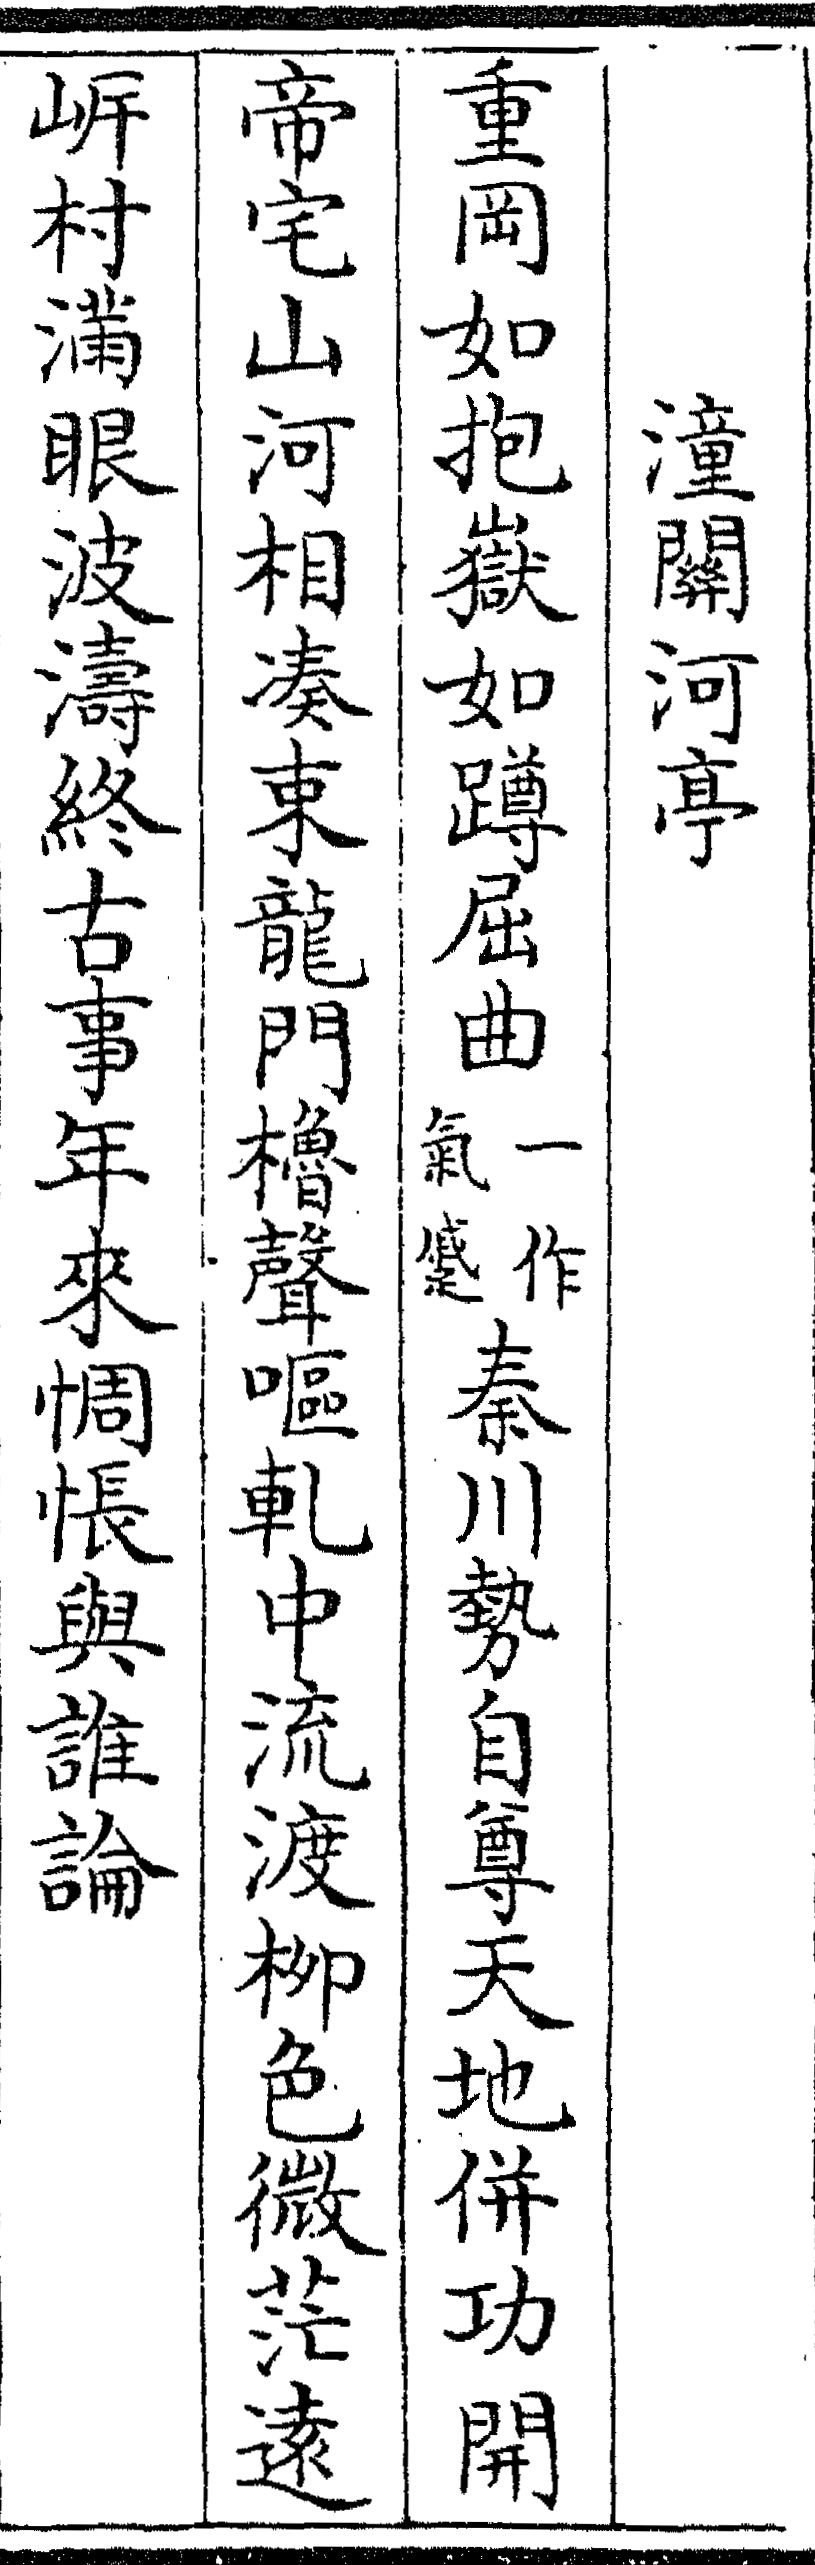 潼關河亭
重岡如抱嶽如蹲屈曲一作氣蹙秦川勢自尊天地併功開
帝宅山河相湊束龍門櫓聲嘔軋中流渡栁色微茫逺
岍村滿眼波濤終古事年來惆悵與誰論